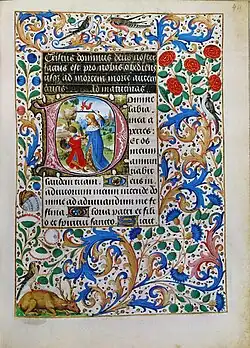 Cristus dominus deus noster
factus est pro nobis obediens
usq ad mortem morte autem
crucis Ad matutinas
Domine
labia
mea a
peries:
Et os
meum
annun
ciabit
laudem tuam
adiutorium meum intende do
mine ad adiuuandum me fe
stina Gloria patri et fili
o et spiritui sancto Sicut